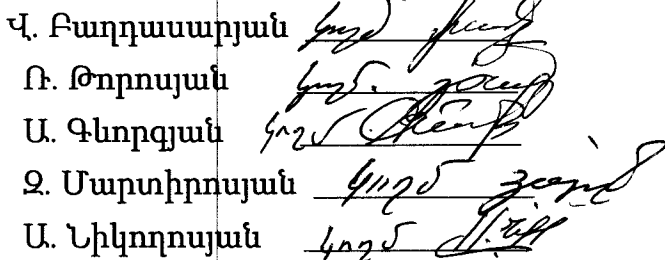 Վ. Բաղդասարյան կողմ
Ռ. Թորոսյան կողմ.
Ա. Գևորգյան կողմ
Զ. Մարտիրոսյան կողմ
Ա. Նիկողոսյան կողմ